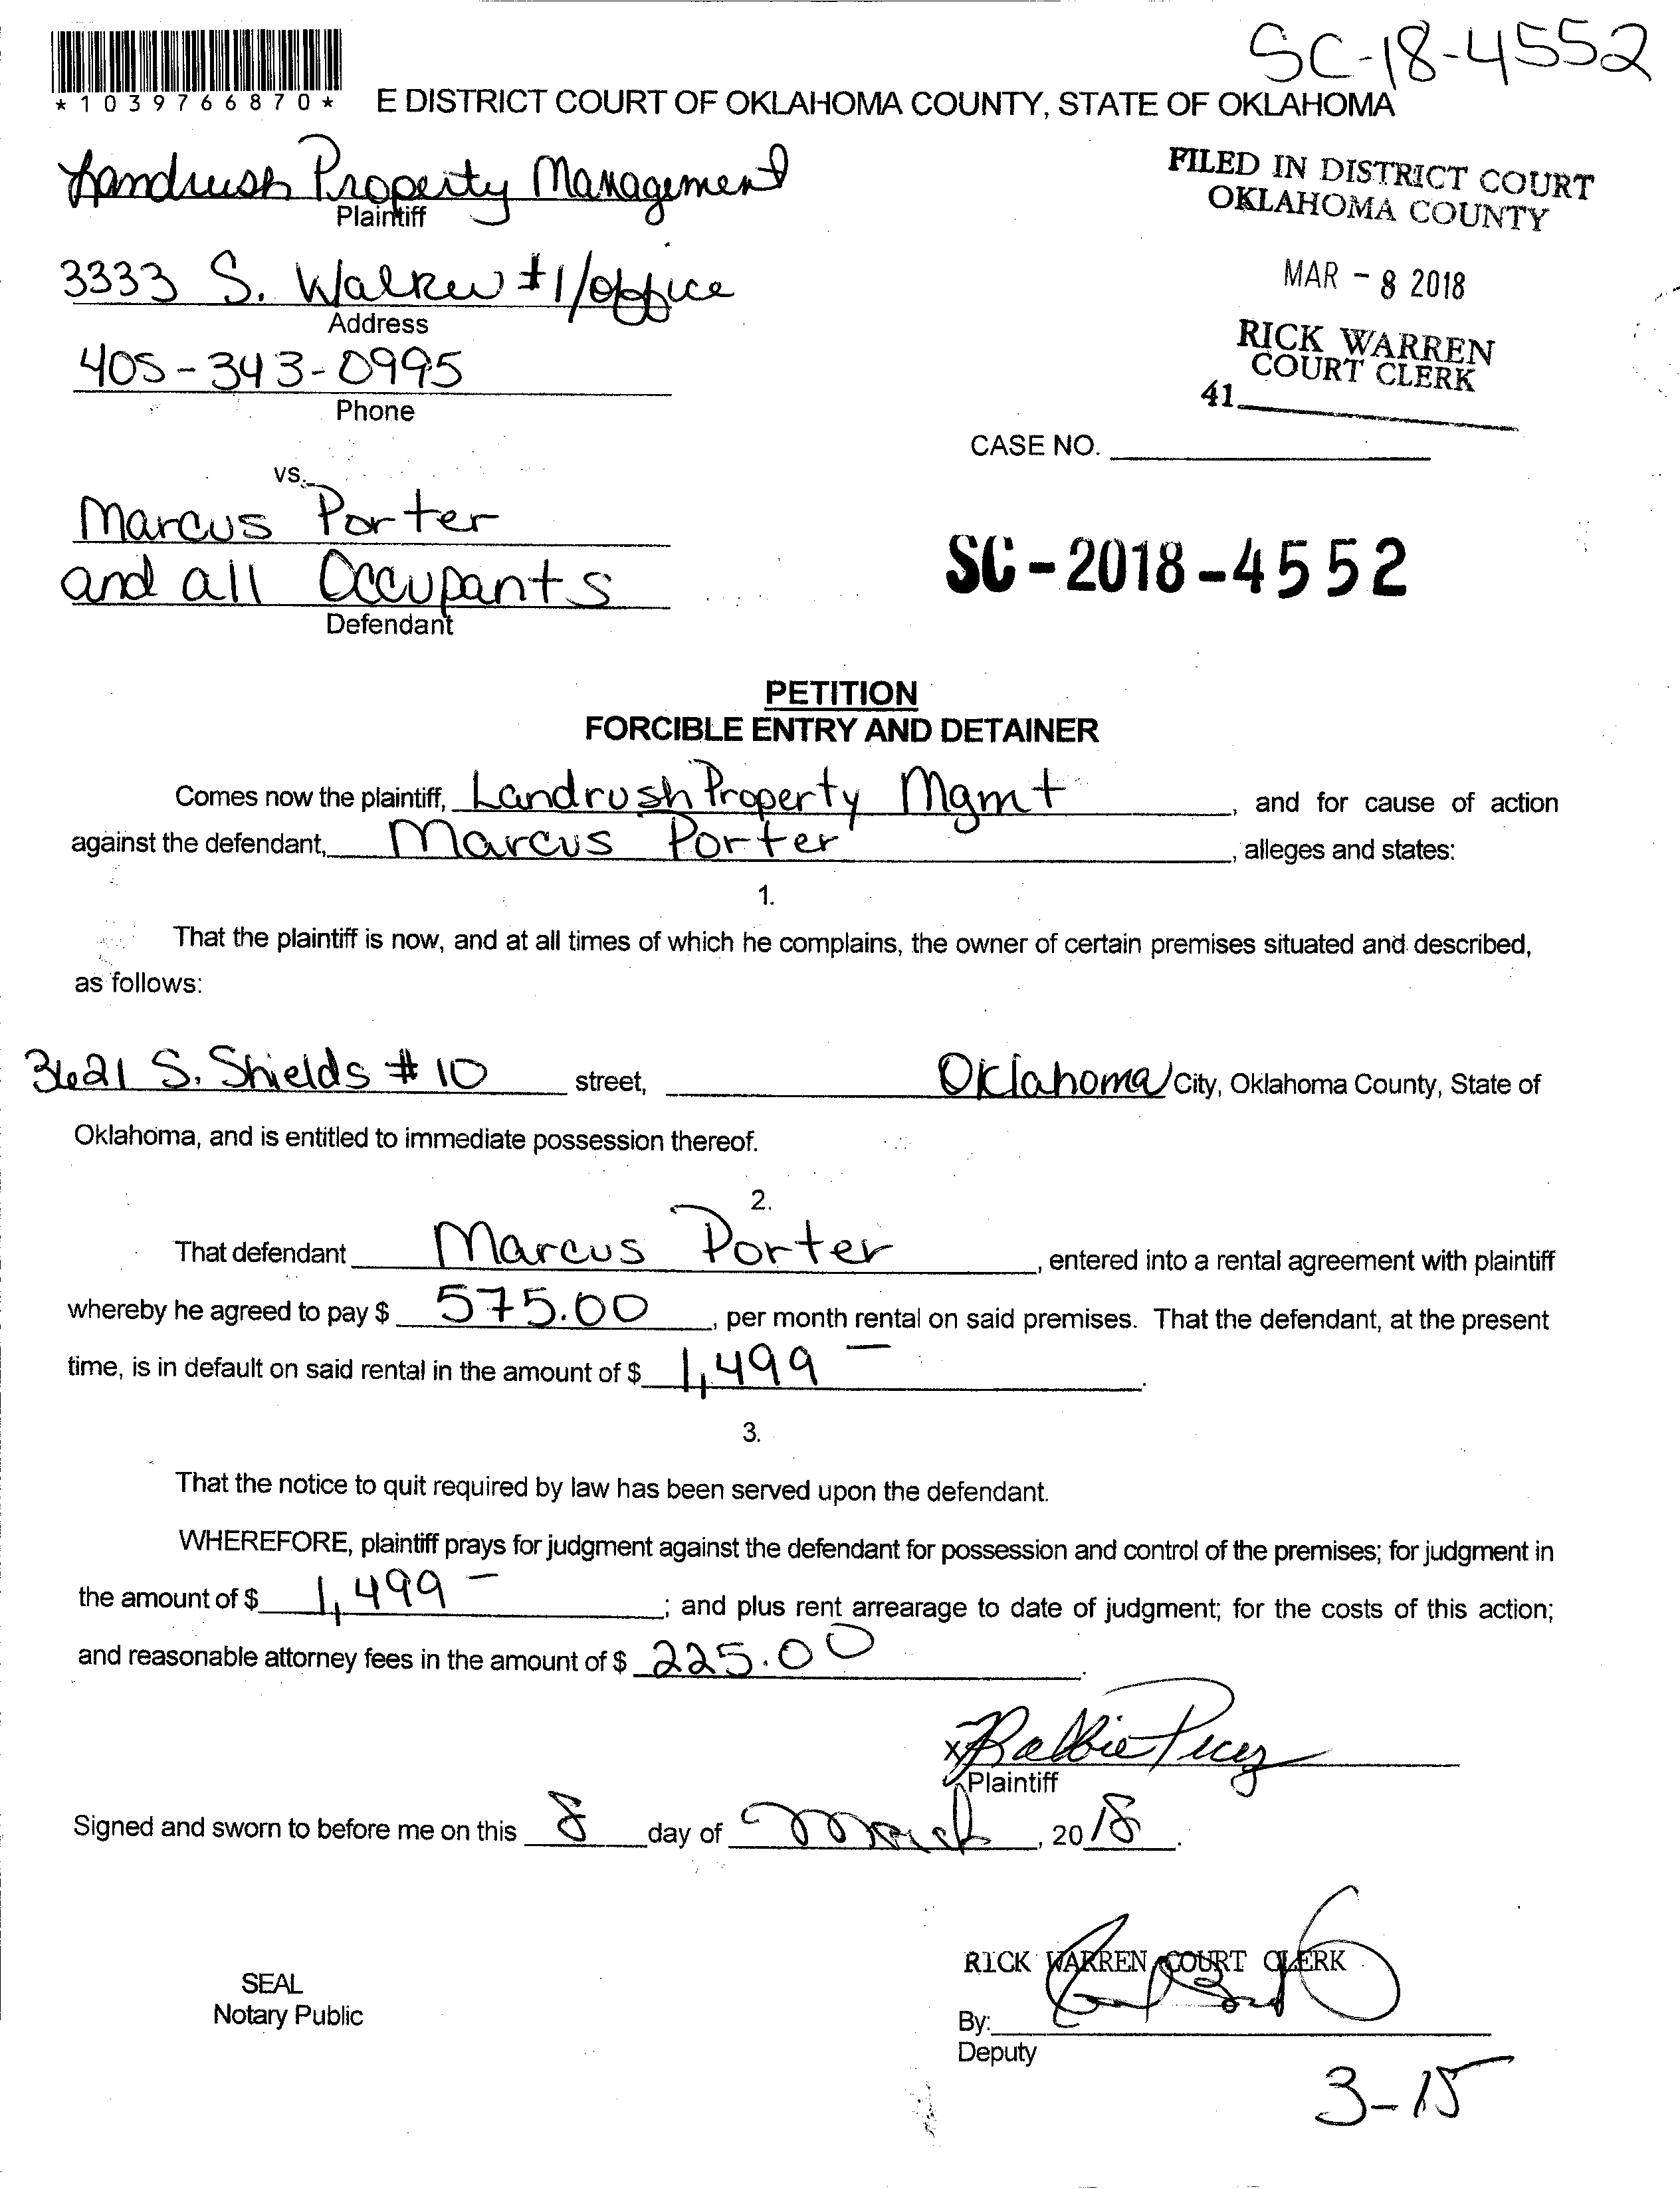 SC-18-4552
*1039766870*
E DISTRICT COURT OF OKLAHOMA COUNTY, STATE OF OKLAHOMA
Landrush Property Management
Plaintiff
FILED IN DISTRICT COURT
OKLAHOMA COUNTY
3333 S. Walker #1/office
Address
MAR - 8 2018
405-343-0995
Phone
RICK WARREN
COURT CLERK
41
CASE NO.
vs.
Marcus Porter
and all Occupants
Defendant
SC-2018-4552
PETITION
FORCIBLE ENTRY AND DETAINER
Comes now the plaintiff, Landrush Property Mgmt, and for cause of action
against the defendant, Marcus Porter, alleges and states:
1.
That the plaintiff is now, and at all times of which he complains, the owner of certain premises situated and described,
as follows:
3621 S. Shields # 10 street, Oklahoma City, Oklahoma County, State of
Oklahoma, and is entitled to immediate possession thereof.
2.
That defendant Marcus Porter, entered into a rental agreement with plaintiff
whereby he agreed to pay $ 575.00, per month rental on said premises. That the defendant, at the present
time, is in default on said rental in the amount of $ 1,499 —.
3.
That the notice to quit required by law has been served upon the defendant.
WHEREFORE, plaintiff prays for judgment against the defendant for possession and control of the premises; for judgment in
the amount of $ 1,499 —; and plus rent arrearage to date of judgment; for the costs of this action;
and reasonable attorney fees in the amount of $ 225.00.
x
Plaintiff
Signed and sworn to before me on this 8 day of March, 2018.
RICK WARREN COURT CLERK
SEAL
Notary Public
By:
Deputy
3-15